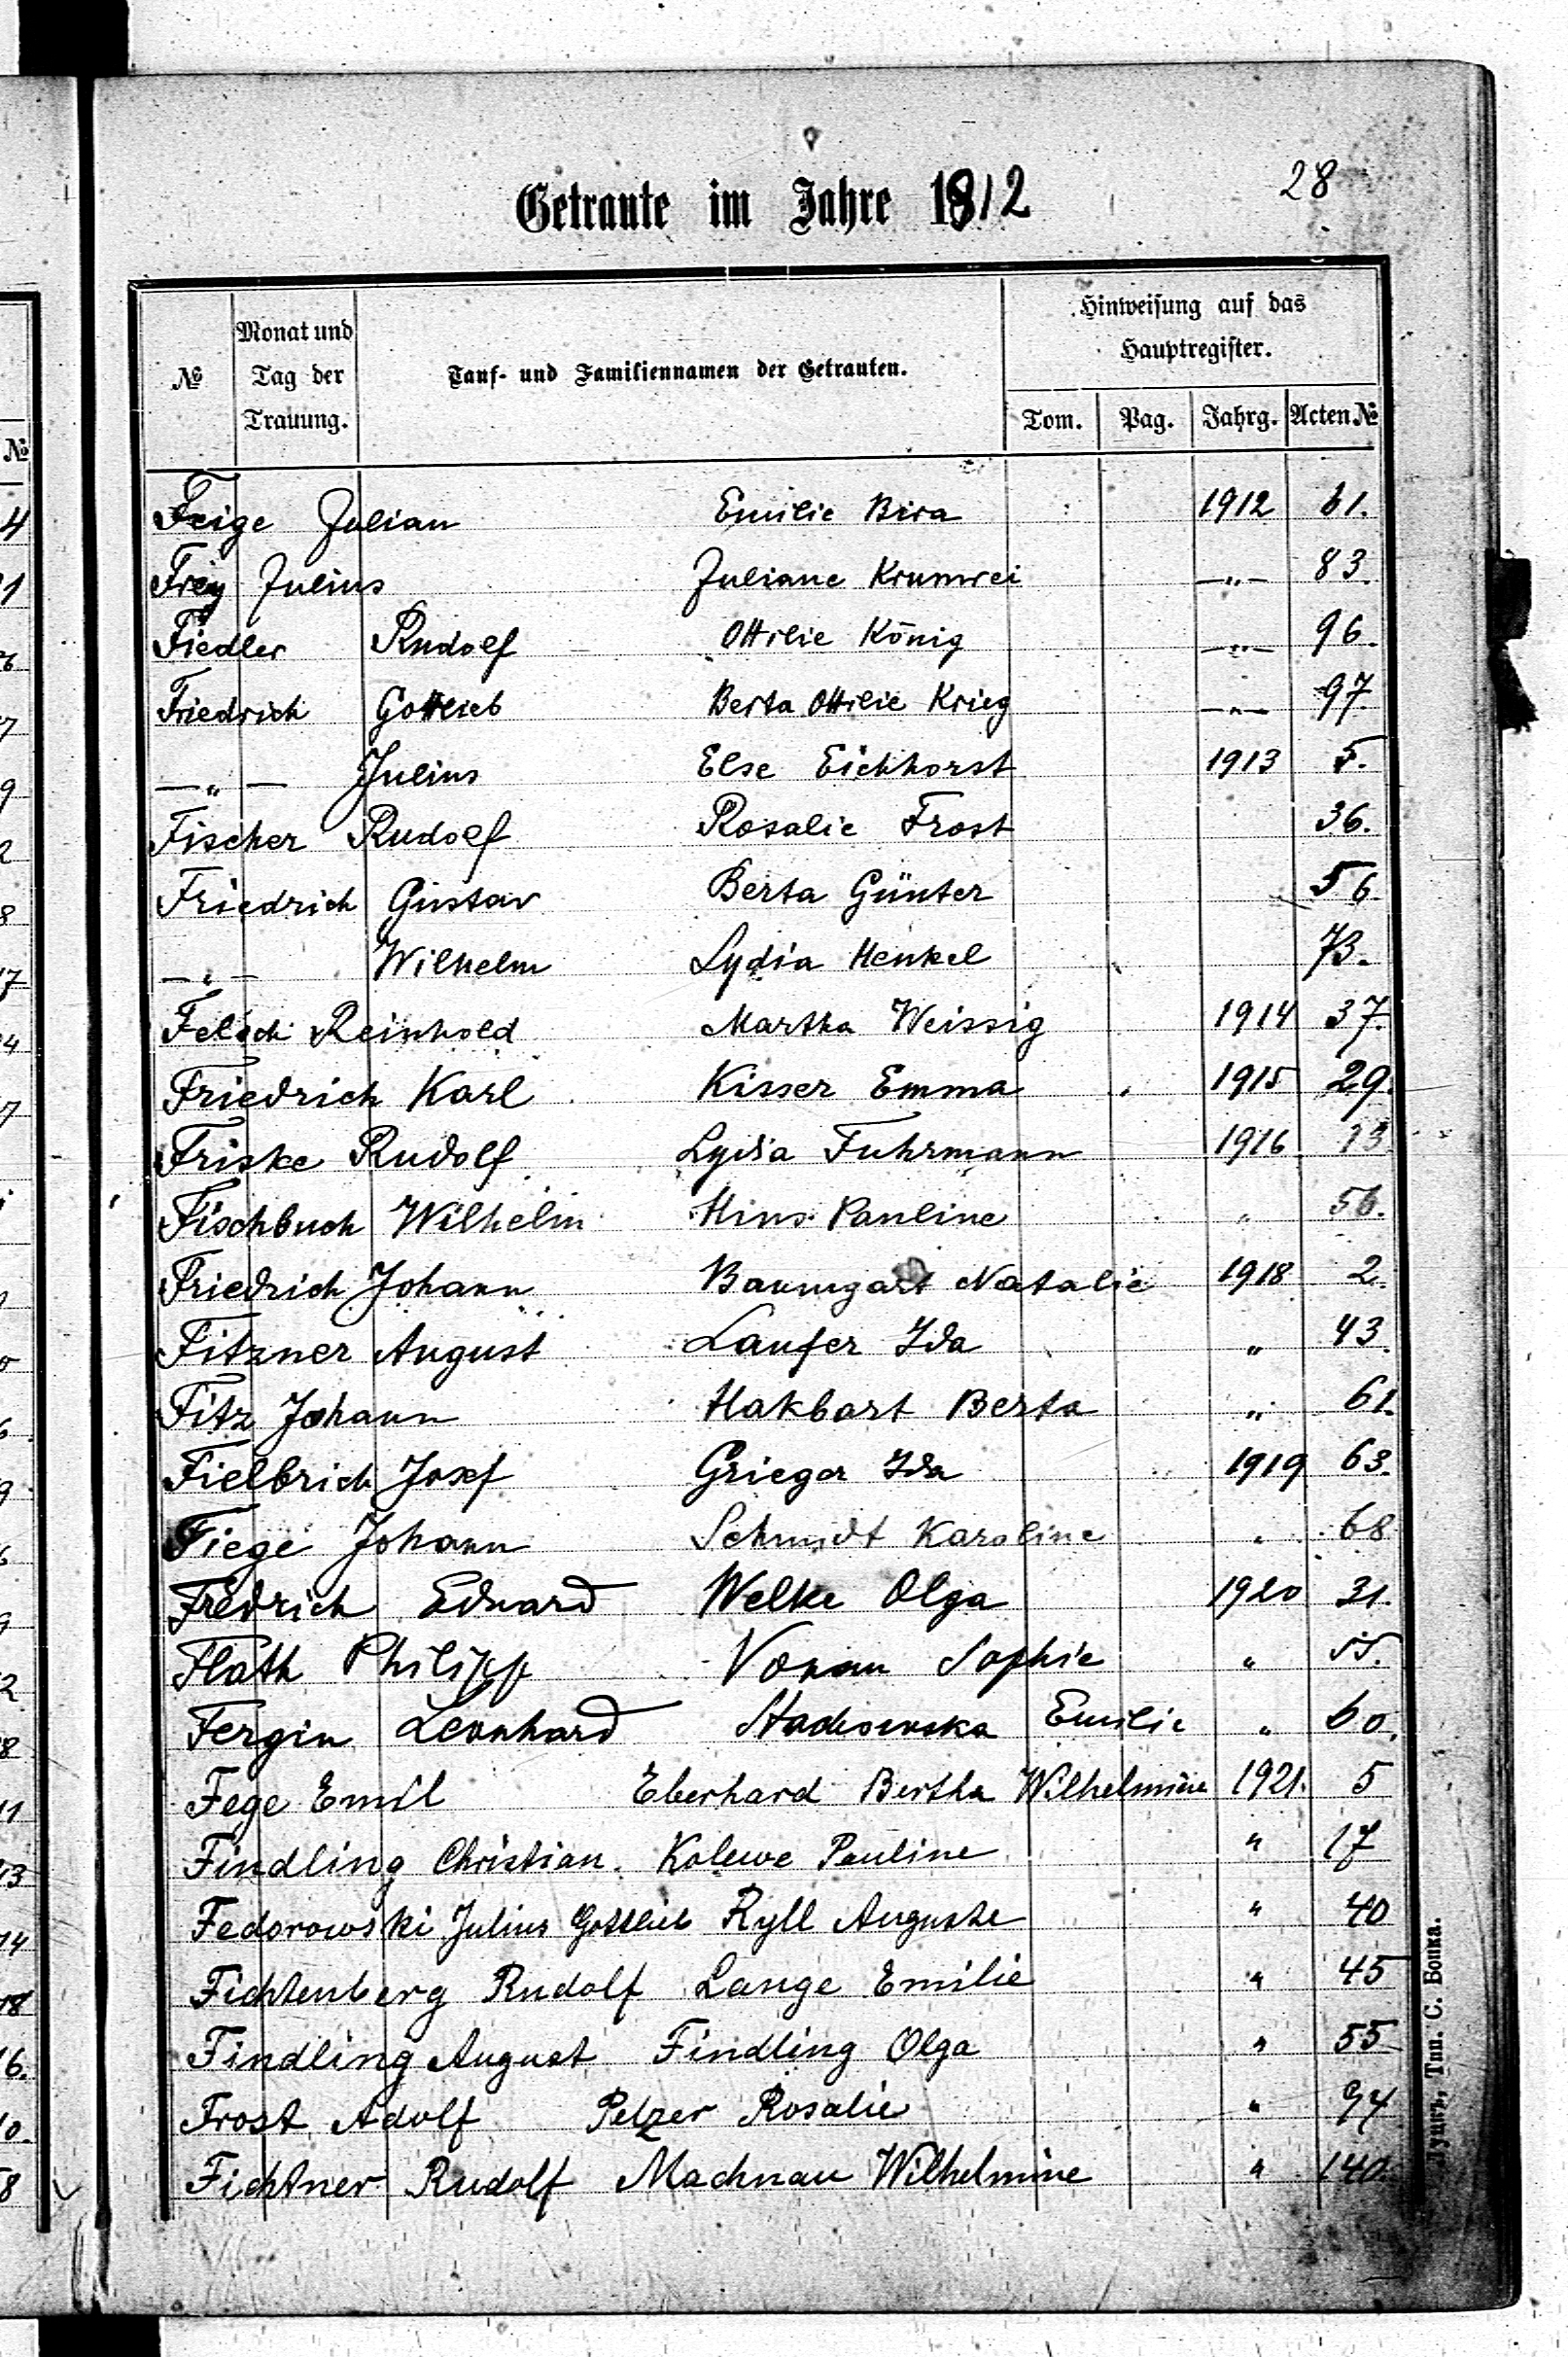 28
Getraute im Jahre 1912
№ Monat und Tag der Trauung. Tauf- und Familiennamen der Getrauten. Hinweisung auf das Hauptregister.
Tom. Pag. Jahrg. Acten №
Feige Julian Emilie Bira 1912 61.
Frey Julius Juliane Krumrei —„— 83.
Fiedler Rudolf Ottilie König —„— 96.
Friedrich Gottlieb Berta Ottilie Krieg —„— 97.
—„— Julius Else Eichhorst 1913 5.
Fischer Rudolf Rosalie Frost 36.
Friedrich Gustav Berta Günter 56.
—„— Wilhelm Lydia Henkel 73.
Felsch Reinhold Martha Weissig 1914 37.
Friedrich Karl Kisser Emma 1915 29.
Friske Rudolf Lydia Fuhrmann 1916 13.
Fischbuch Wilhelm Hins Pauline „ 56.
Friedrich Johann Baumgart Natalie 1918 2.
Fitzner August Laufer Ida „ 43.
Fitz Johann Hakbart Berta „ 61.
Fielbrich Josef Grieger Ida 1919 63.
Fiege Johann Schmidt Karoline „ 68
Fredrich Eduard Welke Olga 1920 31.
Flath Philipp Vonau Sophie „ 55.
Fergin Leonhard Emilie „ 60.
Fege Emil Eberhard Bertha Wilhelmine 1921. 5
Findling Christian. Kolewe Pauline „ 17
Fedorowski Julius Gottlieb Ryll Auguste „ 40
Fichtenberg Rudolf Lange Emilie „ 45
Findling August Findling Olga „ 55
Frost Adolf Pelzer Rosalie „ 94
Fichtner Rudolf Machnau Wilhelmine „ 140.
Луцкъ, Тип. С. Бонка.